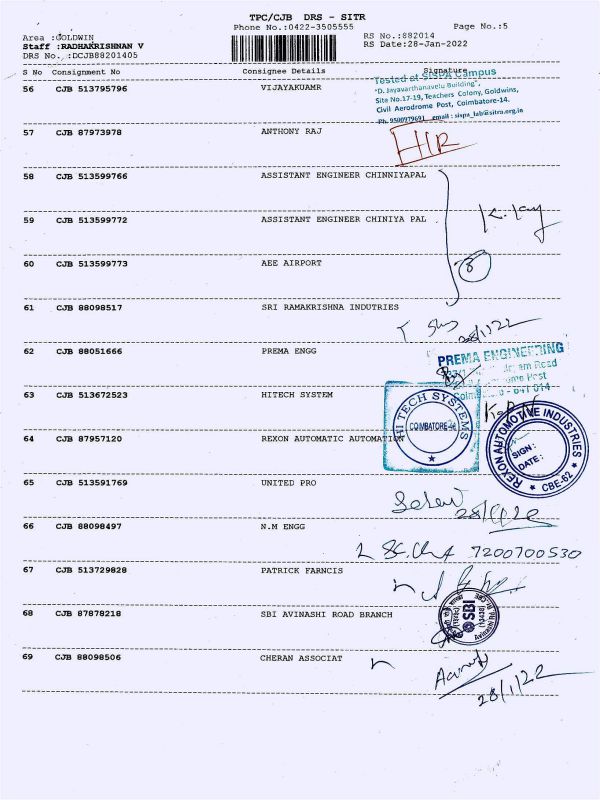 TPC/CJB DRS - SITR
Phone No.:0422-3505555 Page No.:5
Area :GOLDWIN RS No.:882014
Staff :RADHAKRISHNAN V RS Date:28-Jan-2022
DRS No. :DCJB88201405
S No Consignment No Consignee Details Signature
Tested at SISPA Campus
56 CJB 513795796 VIJAYAKUAMR
"D. Jayavarthanavelu Building",
Site No.17-19, Teachers Colony, Goldwins,
Civil Aerodrome Post, Coimbatore-14.
Ph. 9500979691 email : sispa_lab@sitra.org.in
57 CJB 87973978 ANTHONY RAJ
58 CJB 513599766 ASSISTANT ENGINEER CHINNIYAPAL
59 CJB 513599772 ASSISTANT ENGINEER CHINIYA PAL
60 CJB 513599773 AEE AIRPORT
61 CJB 88098517 SRI RAMAKRISHNA INDUTRIES
28/1/22
62 CJB 88051666 PREMA ENGG
PREMA ENGINEERING
63 CJB 513672523 HITECH SYSTEM
HI TECH SYSTEMS
COIMBATORE
64 CJB 87957120 REXON AUTOMATIC AUTOMATION
REXON AUTOMOTIVE INDUSTRIES
SIGN :
DATE :
CBE-62
65 CJB 513591769 UNITED PRO
66 CJB 88098497 N.M ENGG
7200700530
67 CJB 513729828 PATRICK FARNCIS
68 CJB 87878218 SBI AVINASHI ROAD BRANCH
SBI
69 CJB 88098506 CHERAN ASSOCIAT
28/1/22